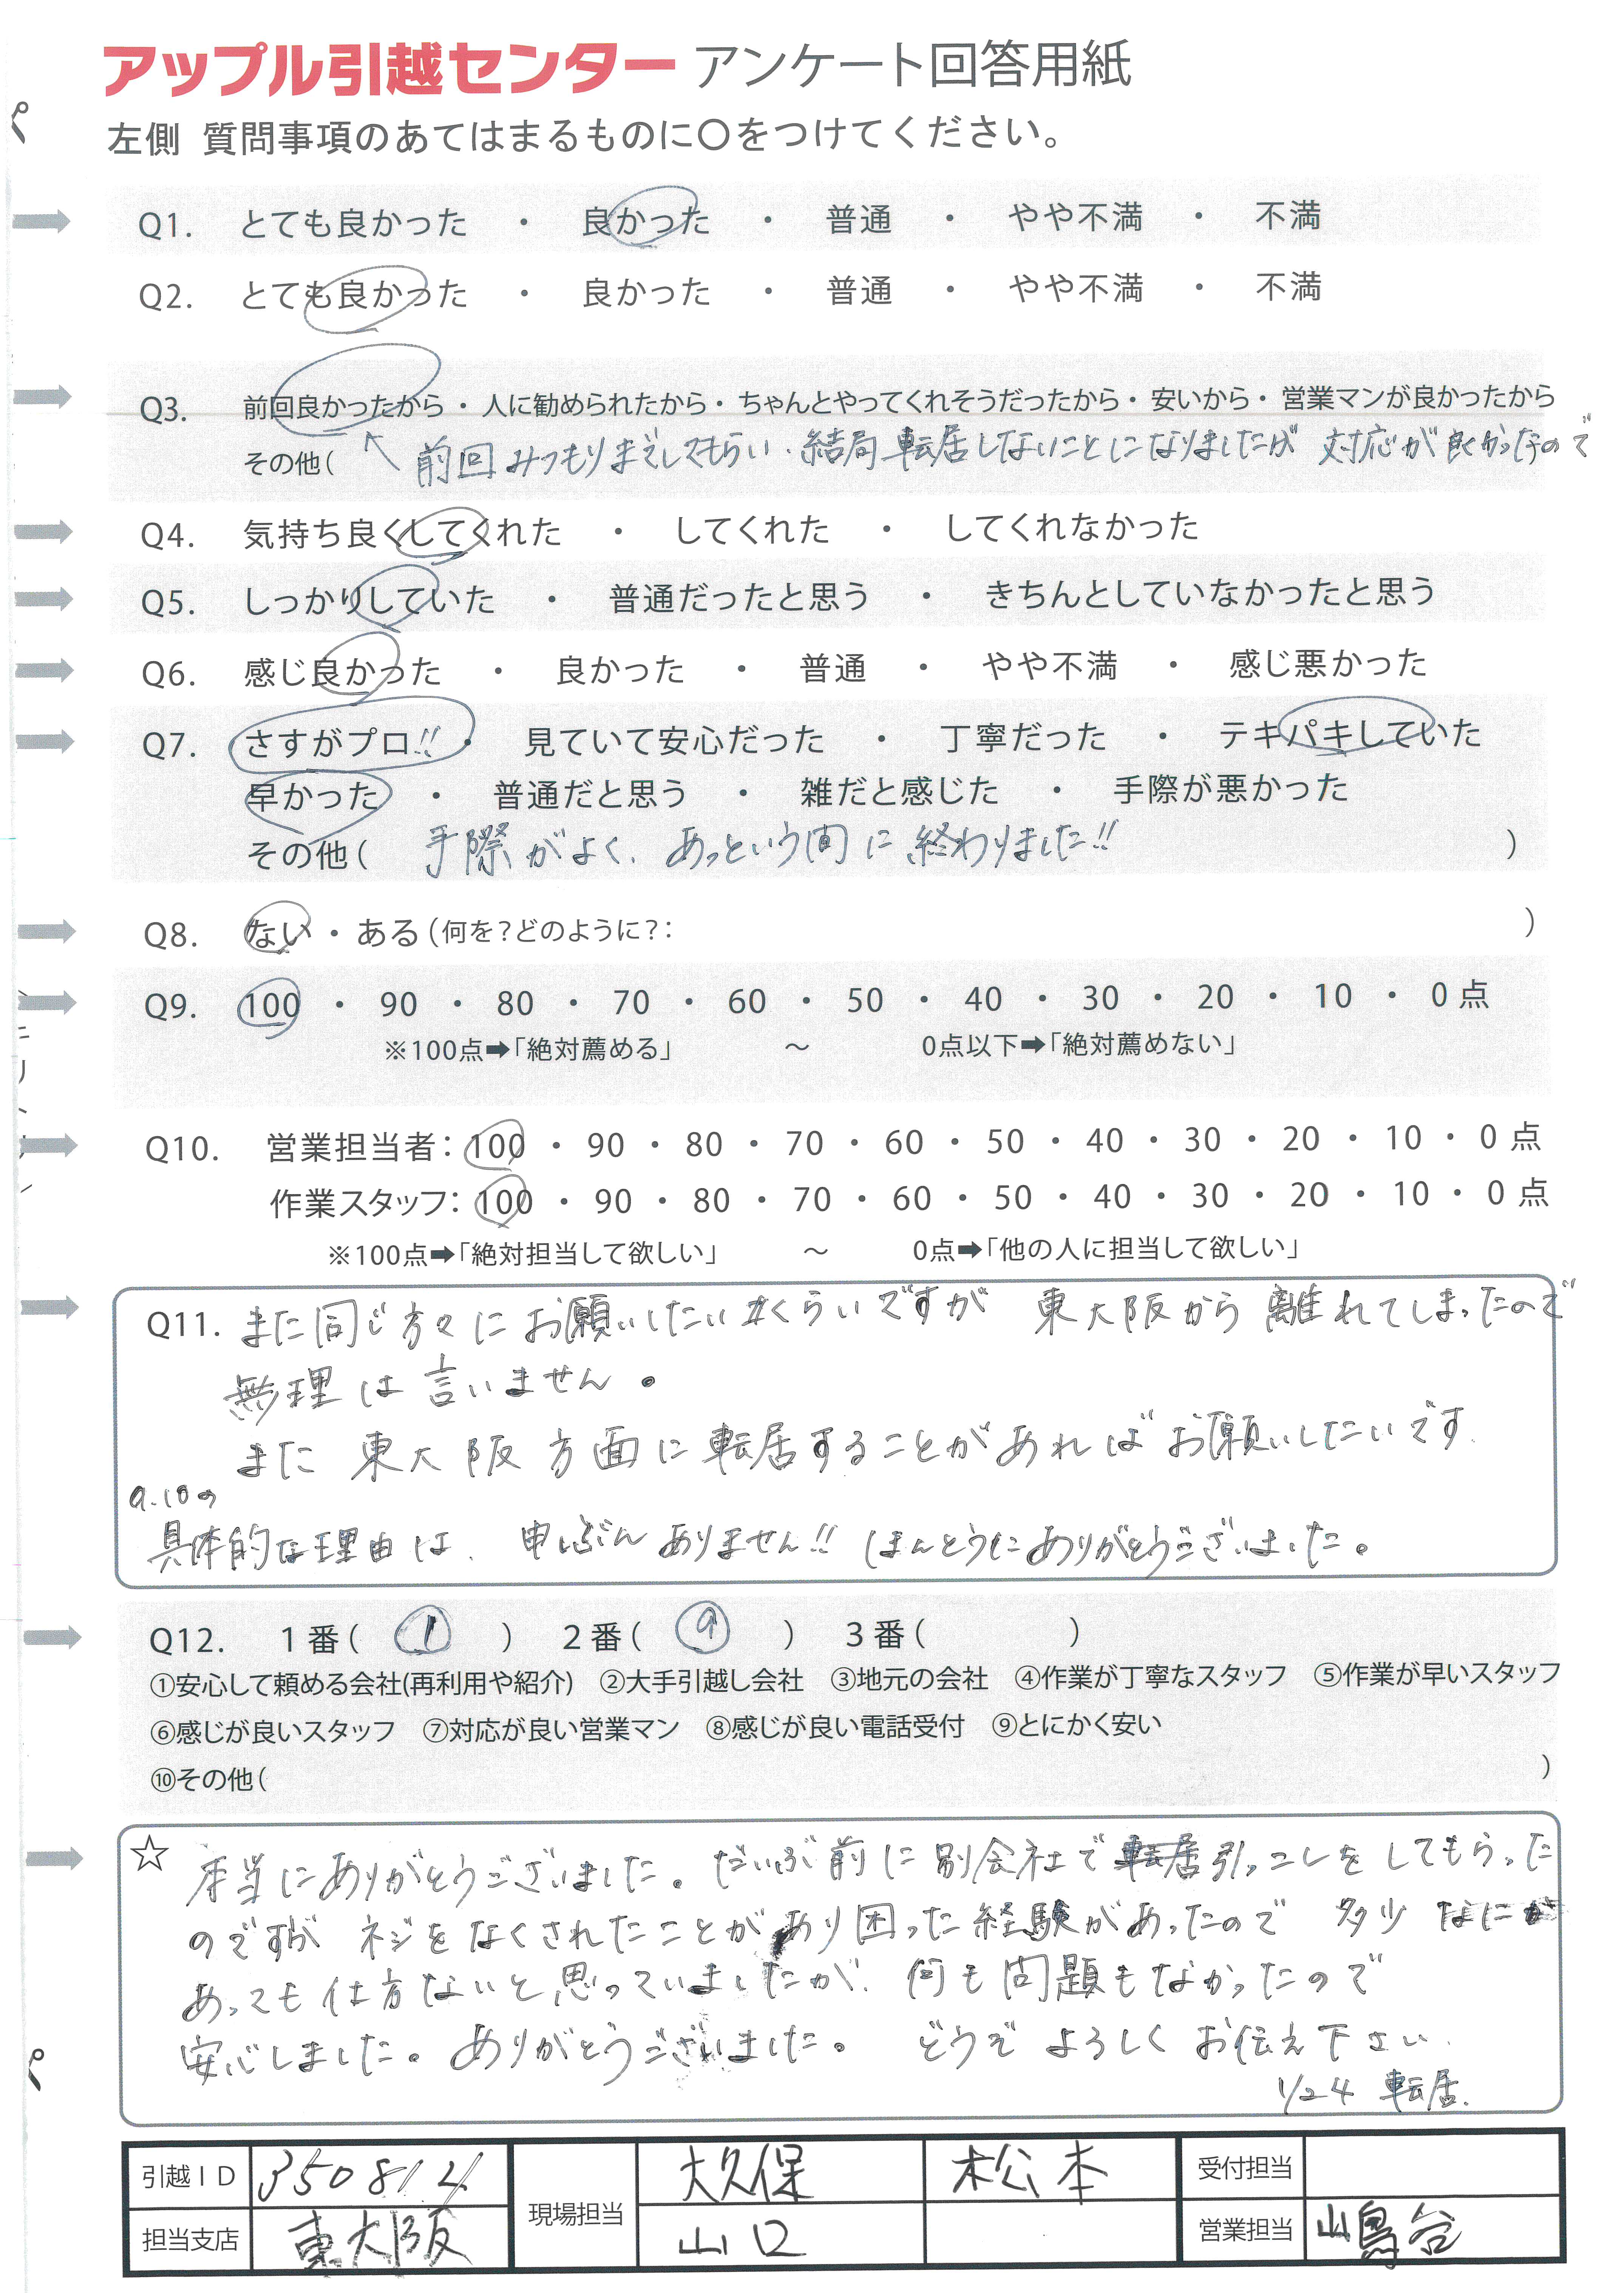 アップル引越センター アンケート回答用紙
左側 質問事項のあてはまるものに○をつけてください。
Q1. とても良かった ・ 良かった ・ 普通 ・ やや不満 ・ 不満
Q2. とても良かった ・ 良かった ・ 普通 ・ やや不満 ・ 不満
Q3. 前回良かったから・人に勧められたから・ちゃんとやってくれそうだったから・安いから・営業マンが良かったから
その他( 前回みつもりまでしてもらい、結局転居しないことになりましたが 対応が良かったので
Q4. 気持ち良くしてくれた ・ してくれた ・ してくれなかった
Q5. しっかりしていた ・ 普通だったと思う ・ きちんとしていなかったと思う
Q6. 感じ良かった ・ 良かった ・ 普通 ・ やや不満 ・ 感じ悪かった
Q7. さすがプロ!! ・ 見ていて安心だった ・ 丁寧だった ・ テキパキしていた
早かった ・ 普通だと思う ・ 雑だと感じた ・ 手際が悪かった
その他( 手際がよく、あっという間に終わりました!! )
Q8. ない ・ ある(何を?どのように?: )
Q9. 100 ・ 90 ・ 80 ・ 70 ・ 60 ・ 50 ・ 40 ・ 30 ・ 20 ・ 10 ・ 0 点
※100点➡「絶対薦める」 ~ 0点以下➡「絶対薦めない」
Q10. 営業担当者: 100 ・ 90 ・ 80 ・ 70 ・ 60 ・ 50 ・ 40 ・ 30 ・ 20 ・ 10 ・ 0 点
作業スタッフ: 100 ・ 90 ・ 80 ・ 70 ・ 60 ・ 50 ・ 40 ・ 30 ・ 20 ・ 10 ・ 0 点
※100点➡「絶対担当して欲しい」 ~ 0点➡「他の人に担当して欲しい」
Q11. また同じ方々にお願いしたいくらいですが 東大阪から離れてしまったので
無理は言いません。
また 東大阪方面に転居することがあればお願いしたいです。
9.10の
具体的な理由は、申しぶんありません!! ほんとうにありがとうございました。
Q12. 1番( 1 ) 2番( 9 ) 3番( )
①安心して頼める会社(再利用や紹介) ②大手引越し会社 ③地元の会社 ④作業が丁寧なスタッフ ⑤作業が早いスタッフ
⑥感じが良いスタッフ ⑦対応が良い営業マン ⑧感じが良い電話受付 ⑨とにかく安い
⑩その他( )
☆ 本当にありがとうございました。だいぶ前に別会社で引っこしをしてもらった
のですが ネジをなくされたことがあり困った経験があったので 多少なにが
あっても仕方ないと思っていましたが、何も問題もなかったので
安心しました。ありがとうございました。 どうぞ よろしく お伝え下さい。
1/24 転居.
引越ID 350814 現場担当 大久保 松本 受付担当
担当支店 東大阪 山口 営業担当 嶋谷